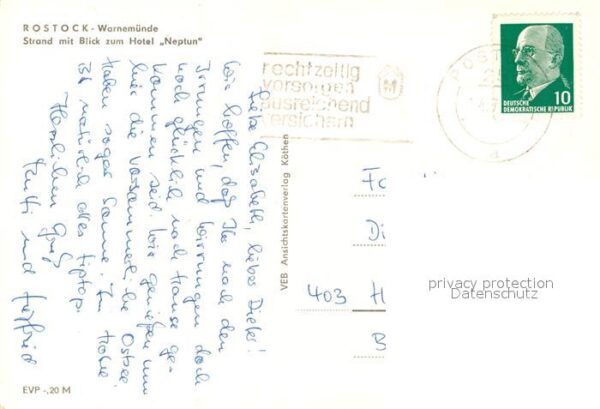 ROSTOCK - Warnemünde
Strand mit Blick zum Hotel „Neptun"
Liebe Elisabeth, lieber Dieter!
Wir hoffen, daß Ihr nach den
Irrungen und Wirrungen doch
noch glücklich nach Hause ge-
kommen seid. Wir genießen nun
hier die Ostsee
Haben sogar Sonne. Im Hotel
ist natürlich alles tiptop.
Herzlichen Gruß
und
rechtzeitig
vorsorgen
ausreichend
versichern
POST
DEUTSCHE
DEMOKRATISCHE REPUBLIK
10
VEB Ansichtskartenverlag Köthen
403 H
privacy protection
Datenschutz
EVP -,20 M